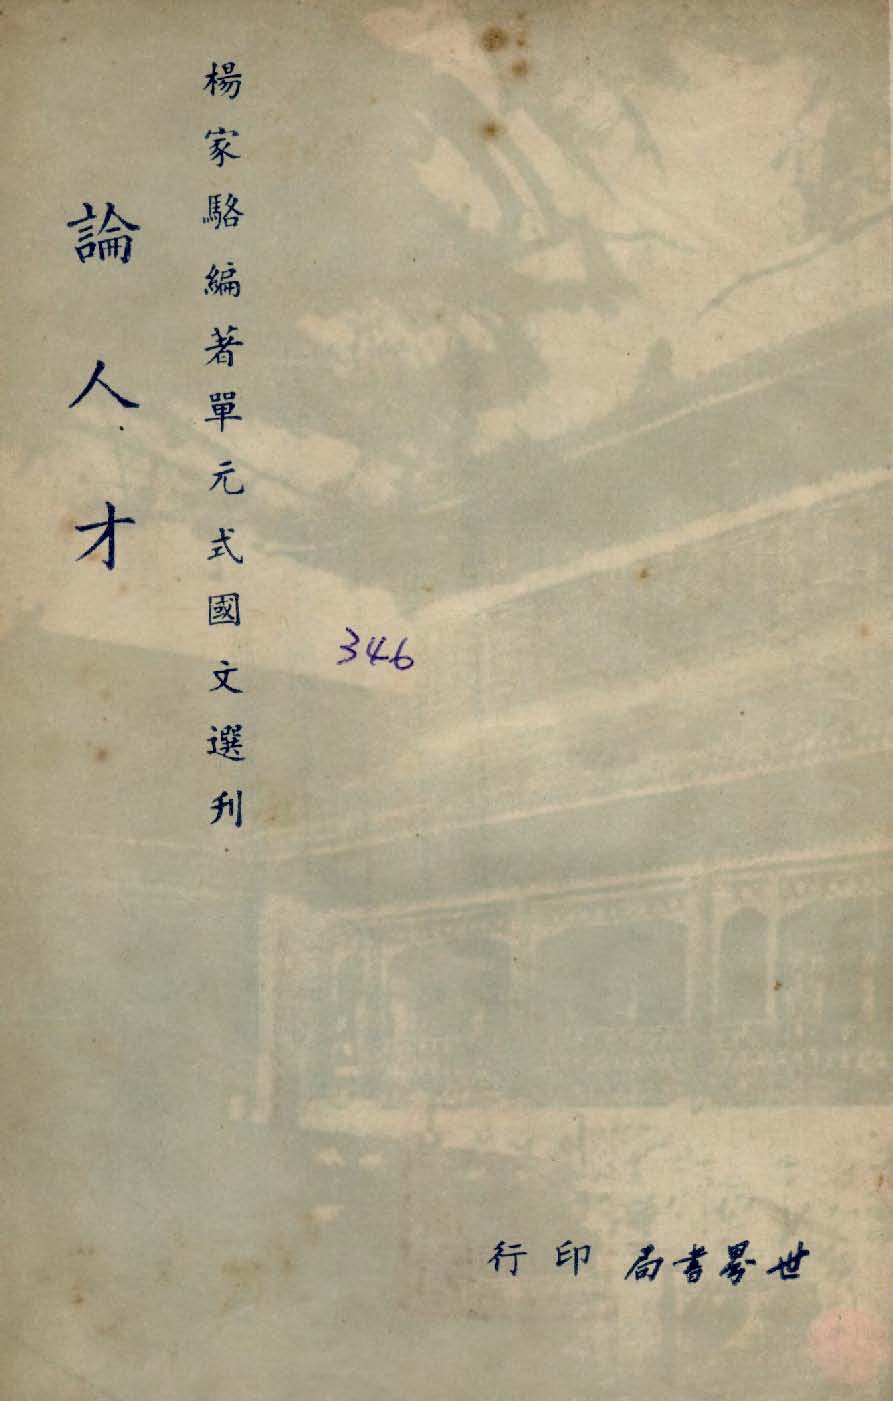 楊家駱編著單元式國文選刋
論人才
346
世界書局印行